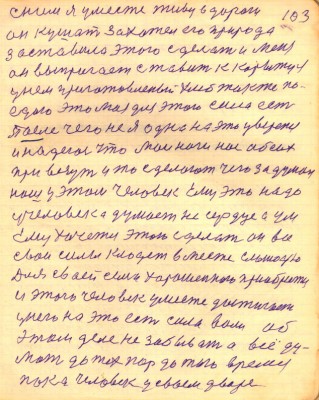 103
с ним я уместе живу в дороги
он кушат захотел его природа
заставила этого сделат и меня
он выпрегает ставит к корыту и
у нем приготовленый хлеб также по
едаю это мой для этого сила ест
После чего не я одна на это уверена
и надеюс что мои ноги нас обеих
привезут и то сделают чего задумал
наш у этом человек Ему это надо
у человека думает не сердце а ум
Ему хочется этого сделат он все
свои силы кладет вместе с лошадю
Для своей семи хорошенького приобрести
и этого человек умеете достигает
у него на это ест сила воли об
этом деле не забывают а всё ду-
мают до тех пор до того время
пока человек у своем дворе